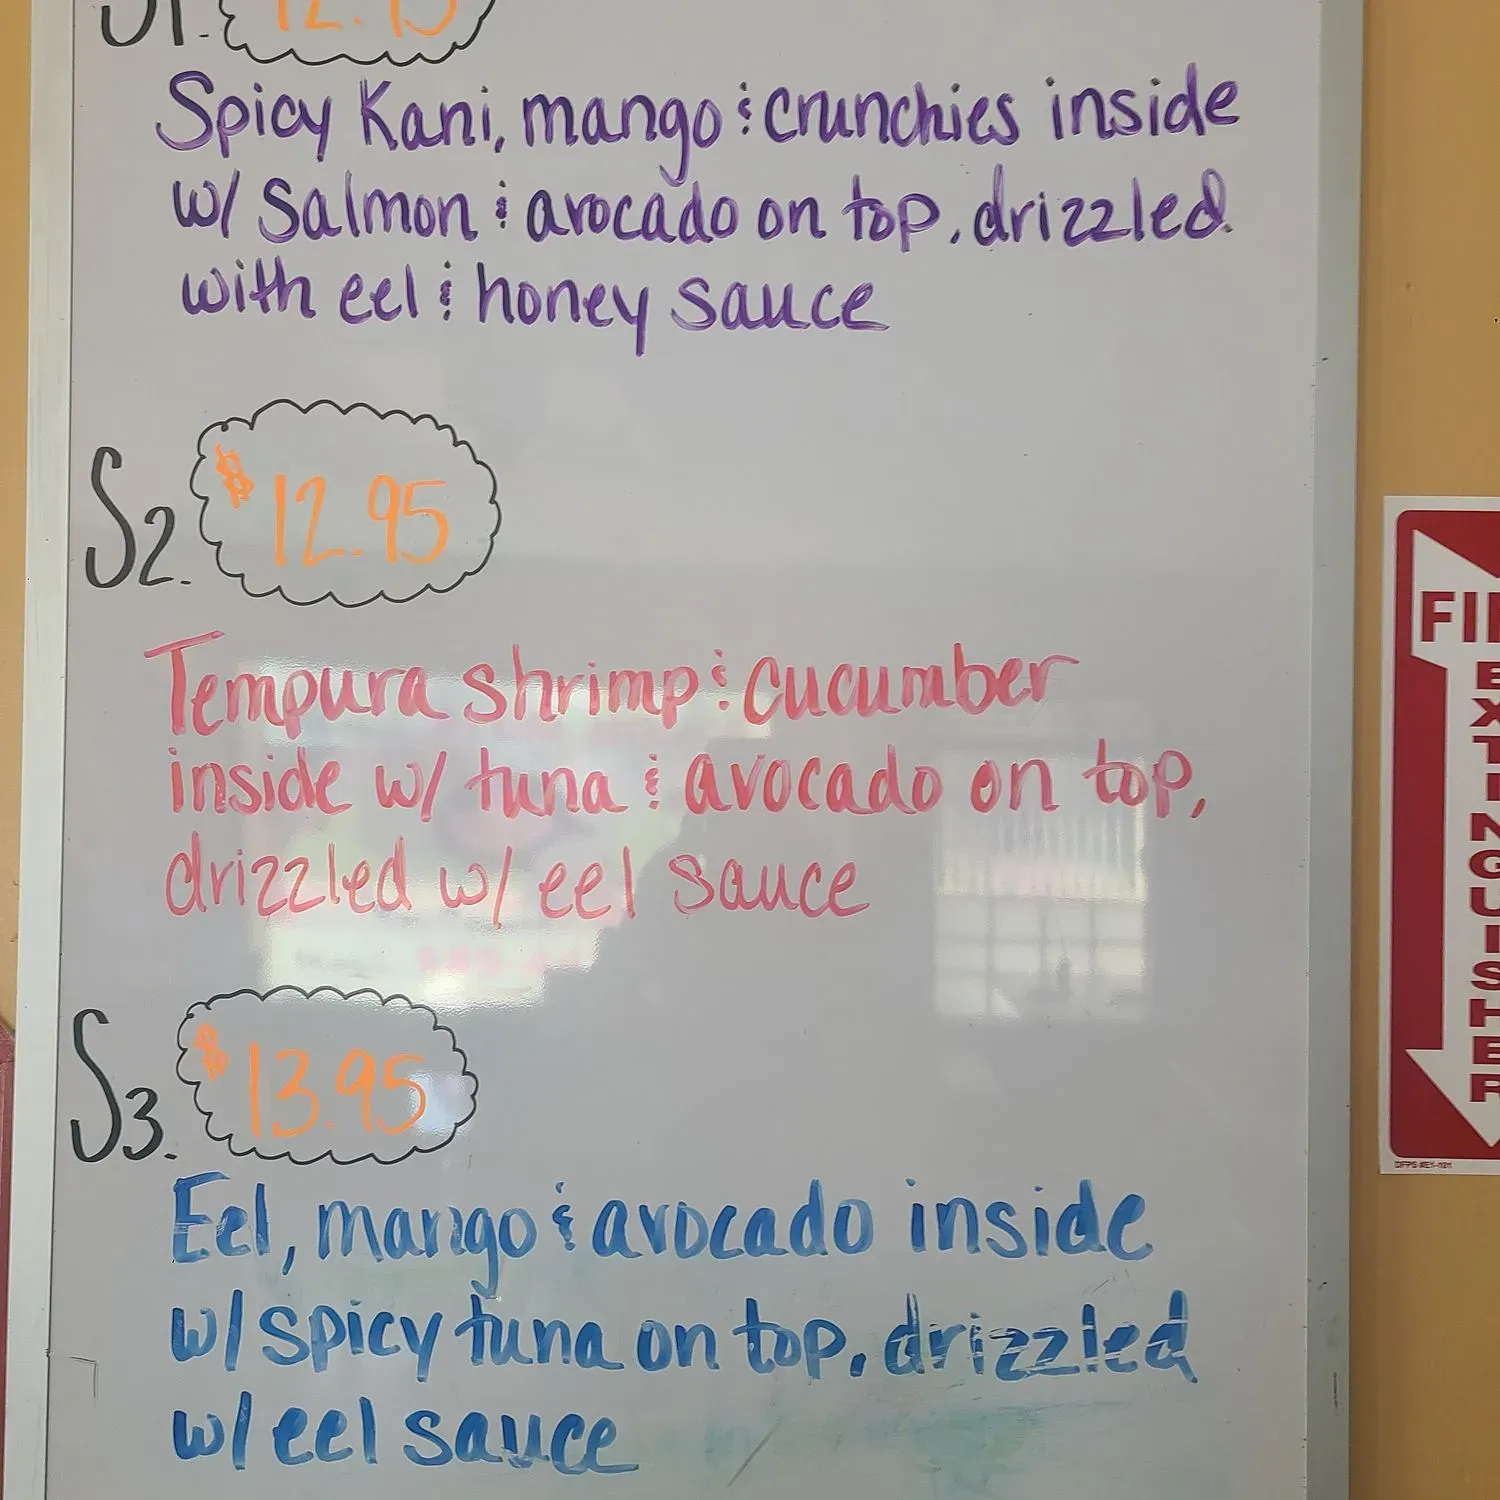 S1. 12.95
Spicy Kani, mango & crunchies inside
w/ Salmon & avocado on top, drizzled
with eel & honey sauce
S2. $12.95
Tempura shrimp & cucumber
inside w/ tuna & avocado on top,
drizzled w/ eel sauce
S3. $13.95
Eel, mango & avocado inside
w/ spicy tuna on top, drizzled
w/ eel sauce
EXTINGUISHER